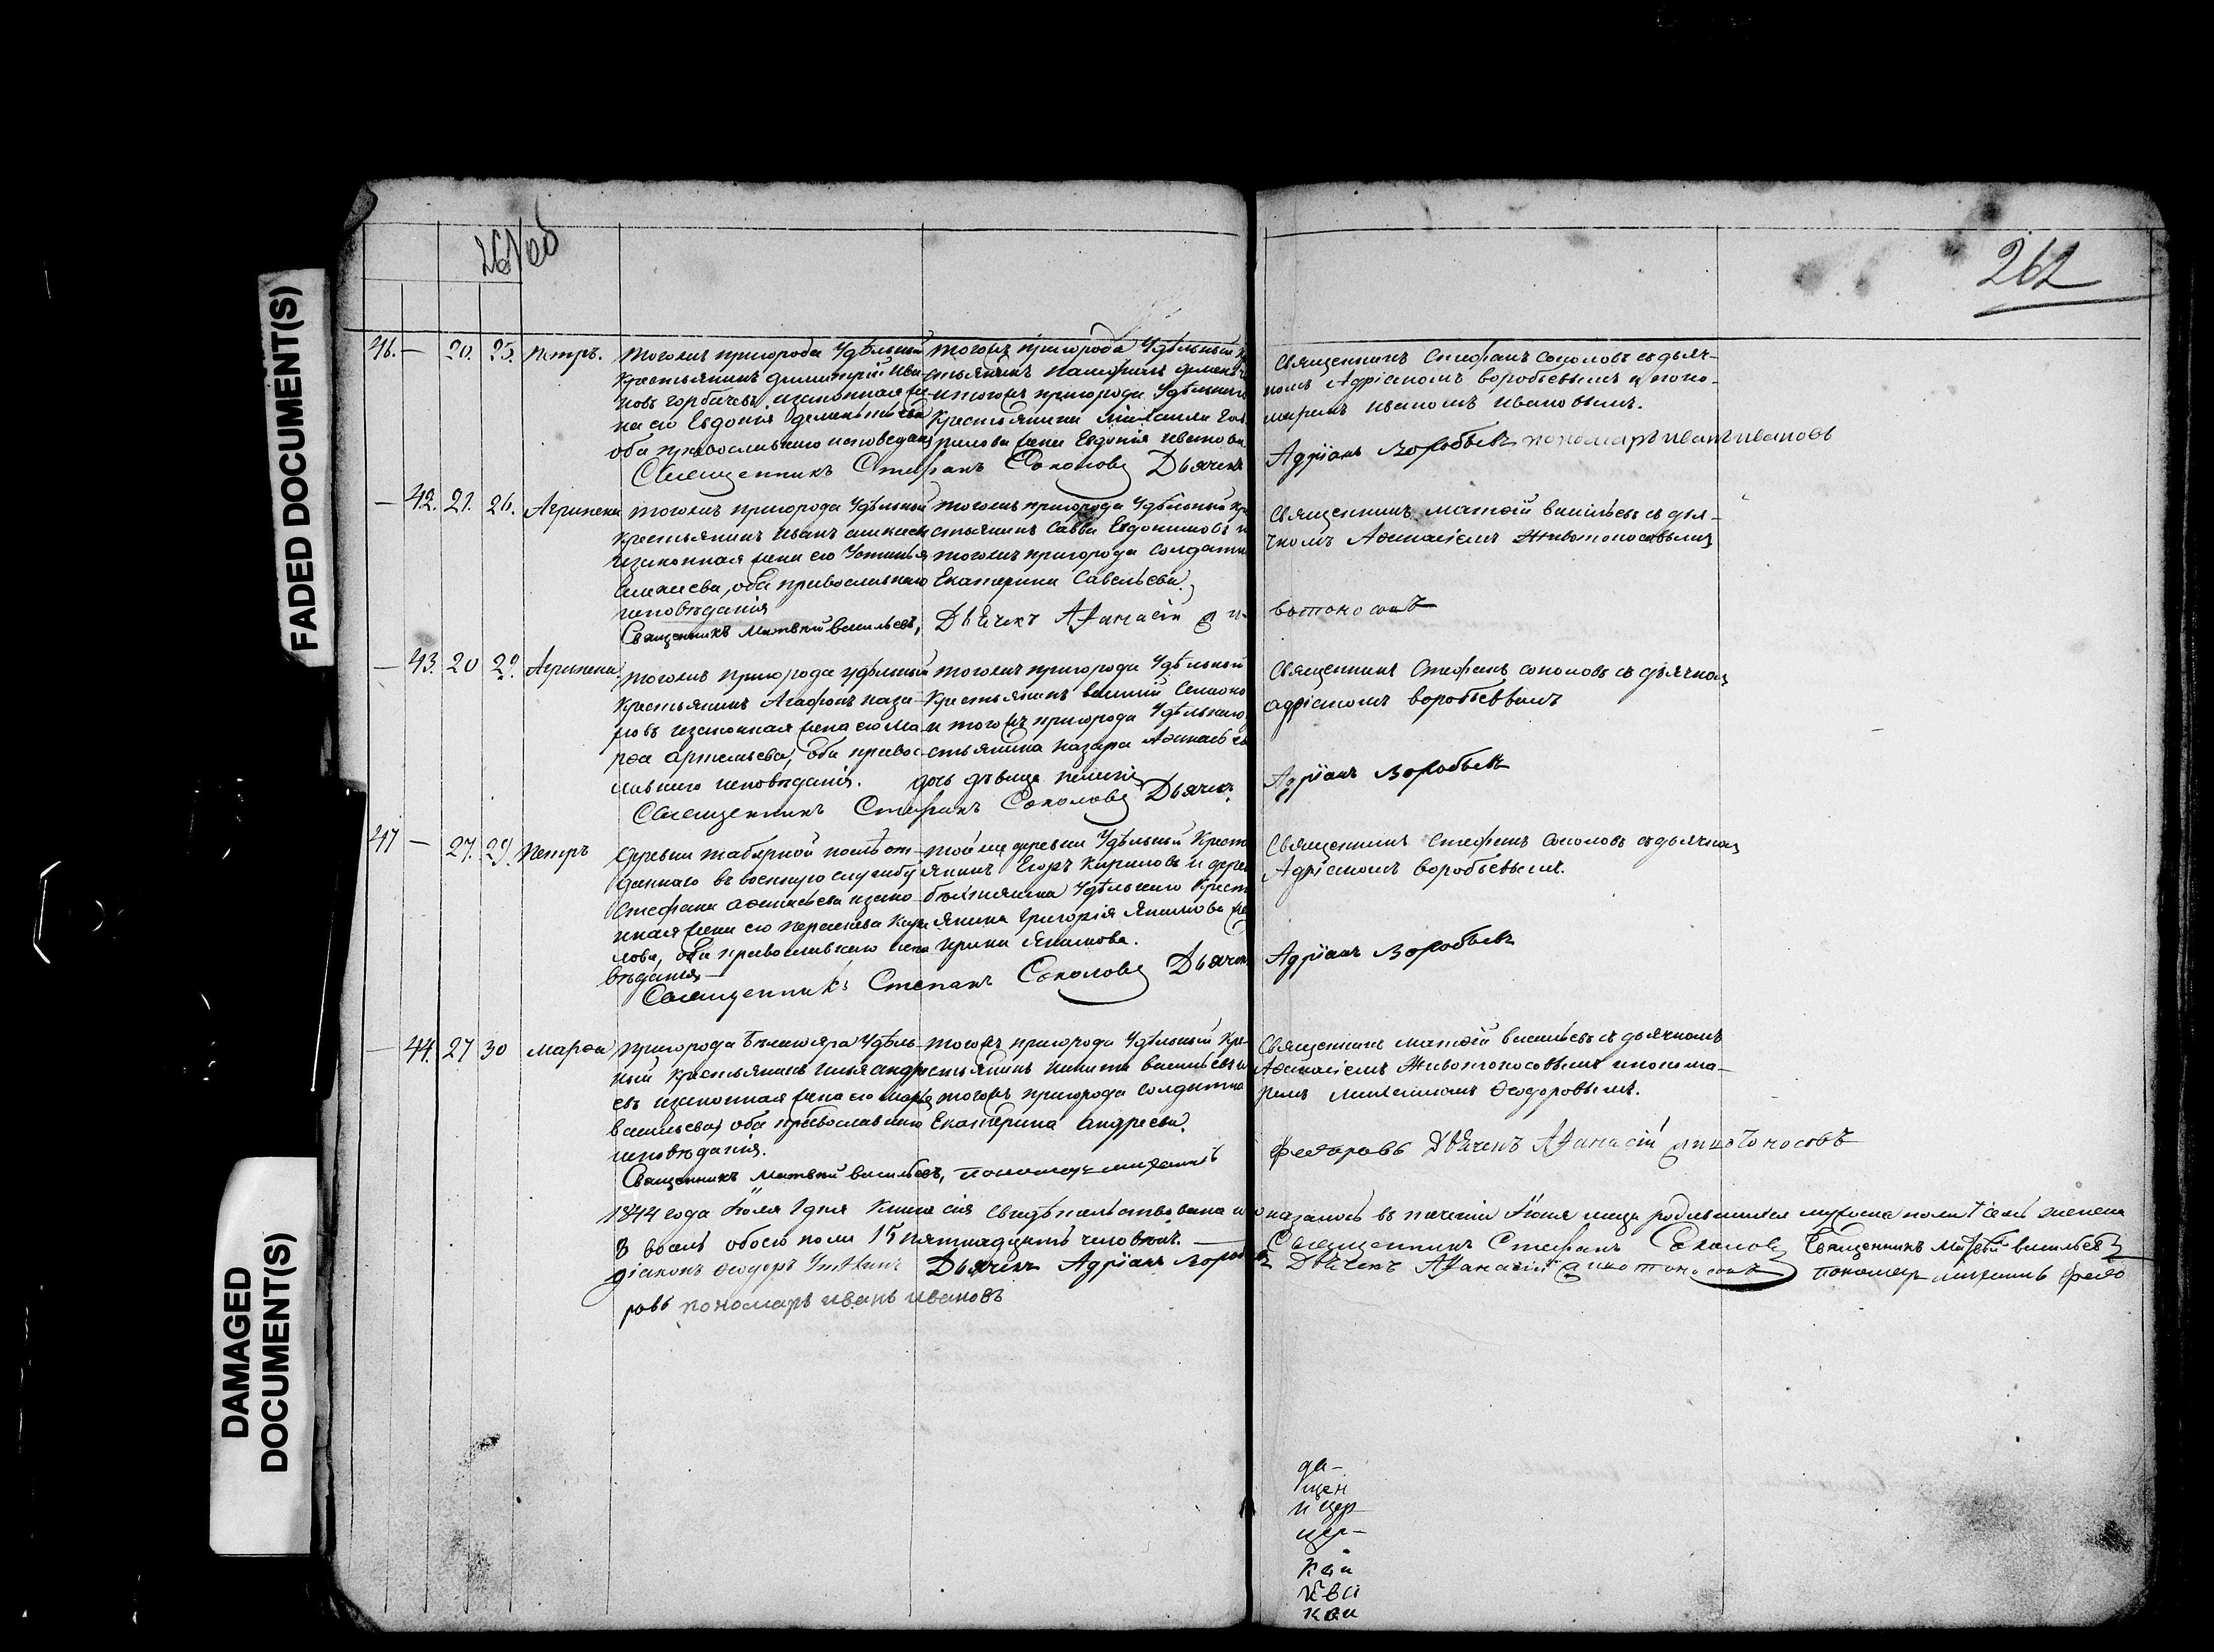 FADED DOCUMENT(S)
DAMAGED
DOCUMENT(S)
261 об
262
46. — 20. 25. Петръ.
Тогожъ пригорода Удѣльный
крестьянинъ Димитрій Ива
новъ Горбачевъ, изаконная же
на его Евдокія Дементьева
оба православнаго исповедан
Тогожъ пригорода Удѣльный кр
стьянинъ
итогожъ пригорода Удѣльнаго
Крестьянина Михаила
жена Евдокія Иванова
Священникъ Стефанъ Соколовъ съ дьяч-
комъ Адріаномъ Воробьевымъ и поно-
маремъ Иваномъ Ивановымъ.
Священникъ Стефанъ Соколовъ Дьячекъ Адріанъ Воробьевъ пономарь Иванъ Ивановъ
— 42. 21. 26. Агрипена
Тогожъ пригорода Удѣльный
крестьянинъ Иванъ
изаконная жена его Устинья
оба православнаго
исповѣданія
Тогожъ пригорода Удѣльный кре
стьянинъ Савва Евдокимовъ и
тогожъ пригорода солдатка
Екатерина Савельева.
Священникъ Матѳій Васильевъ съ дья-
чкомъ Аѳанасіемъ Животоносовымъ
Священникъ Матвѣй Васильевъ, Дьячекъ Афанасій Животоносовъ
— 43. 20 29. Агрипена
Тогожъ пригорода удѣльный
Крестьянинъ Агафонъ Наза-
ровъ изаконная жена его Ма
рѳа Артемьева, оба правос-
лавнаго исповѣданія.
Тогожъ пригорода Удѣльный
Крестьянинъ Василій Семоно
и тогожъ пригорода Удѣльнаго
стьянина Назара Аѳанасьева
дочь дѣвица Пелагія
Священникъ Стефанъ Соколовъ съ дьячкомъ
Адріаномъ Воробьевымъ
Священникъ Стефанъ Соколовъ Дьячекъ Адріанъ Воробьевъ
47 — 27. 29. Петръ
Деревни Табарной послѣ от-
даннаго въ военную службу
Стефана Аѳанасьева изако
нная жена его Перасковья Кири
лова, оба православнаго испо
вѣданія
Той же деревни Удѣльный Крест
янинъ Егоръ Кириловъ и дерев
Удѣльнаго Крест
янина Григорія Якимова же
Ирина Якимова.
Священникъ Стефанъ Соколовъ съ дьячкомъ
Адріаномъ Воробьевымъ.
Священникъ Степанъ Соколовъ Дьячекъ Адріанъ Воробьевъ
— 44. 27 30 Марѳа
Пригорода Бѣлаго Яра Удѣль-
ный Крестьянинъ Илья Андре
евъ изаконная жена его Марья
Васильева, оба православнаго
исповѣданія.
Тогожъ пригорода Удѣльный Кре
стьянинъ Никита Васильевъ и
тогожъ пригорода солдатка
Екатерина Андреева.
Священникъ Матѳій Васильевъ съ дьячкомъ
Аѳанасіемъ Животоносовымъ и понома-
ремъ Михаиломъ Ѳеодоровымъ.
Священникъ Матвѣй Васильевъ, Пономарь Михаилъ Федоровъ Дьячекъ Афанасій Животоносовъ
1844 года Іюля 1 дня Книга сія свидѣтельствована и оказалось въ теченіи Іюня месца родившихся мужеска пола 7 семь женска
8 восмь обоего пола 15 пятнадцать человѣкъ. — Священникъ Стефанъ Соколовъ Священникъ Матвѣй Васильевъ
Діаконъ Ѳеодоръ Дьячекъ Адріанъ Воробьевъ Дьячекъ Афанасій Животоносовъ пономарь Михаилъ Федо
ровъ пономарь Иванъ Ивановъ
да-
щен
и цер
цер-
кви